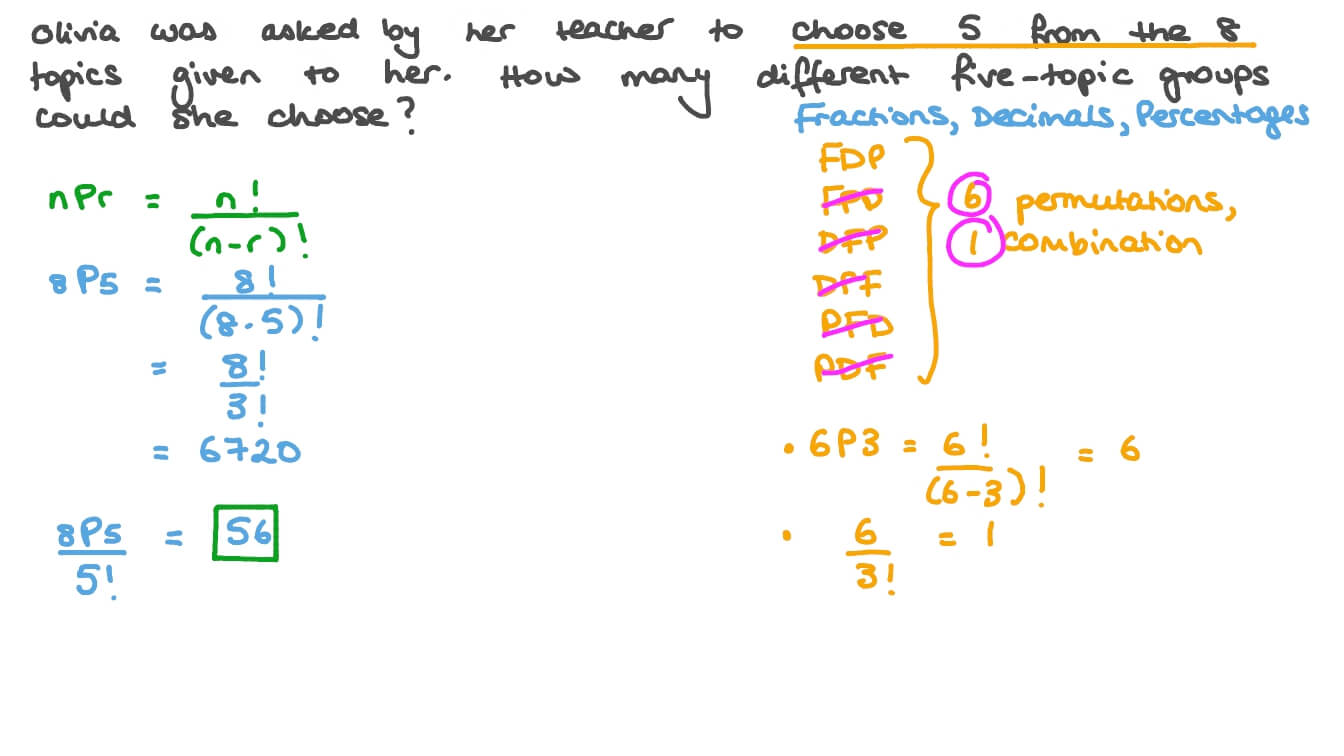 Olivia was asked by her teacher to choose 5 from the 8
topics given to her. How many different five-topic groups
could she choose?
Fractions, Decimals, Percentages
nPr = n!/(n-r)!
8P5 = 8!/(8-5)!
= 8!/3!
= 6720
8P5/5! = 56
FDP
FPD
DFP
DPF
PFD
PDF
6 permutations,
1 combination
• 6P3 = 6!/(6-3)! = 6
• 6/3! = 1